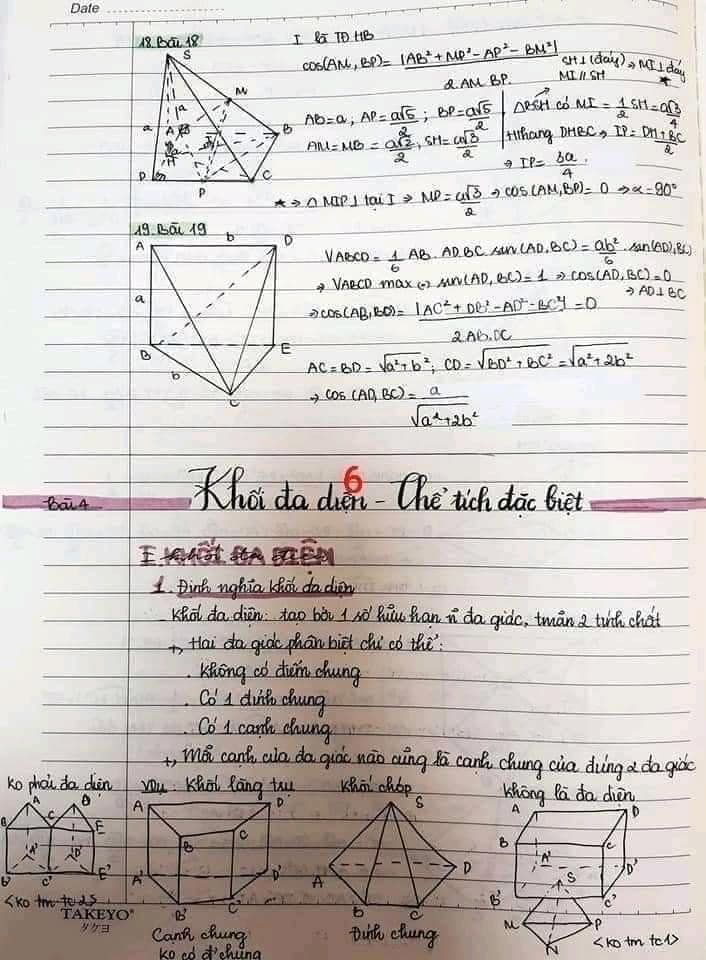 Date
18. Bài 18
I là TĐ HB
cos(AM, BP) = |AB² + MP² - AP² - BM²| / 2.AM.BP.
SH⊥(đáy) ⇒ MI⊥đáy
MI // SH *
AB=a; AP=a√5/2; BP=a√5/2
ΔBSH có MI = 1/2 SH = a√3/4
AM=MB=a√2/2, SH=a√3/2
Hthang DHBC ⇒ IP = DH+BC/2
⇒ IP = 3a/4
* ⇒ Δ MIP⊥ tại I ⇒ MP = a√3/2 ⇒ cos(AM,BP) = 0 ⇒ α=90°
S
M
a
a
A
B
H
P
C
19. Bài 19
A b D
a
B
b
E
C
VABCD = 1/6 AB. AD.BC. sin(AD, BC) = ab²/6 . sin(AD, BC)
⇒ VABCD max ⇔ sin(AD, BC) = 1 ⇒ cos(AD, BC) = 0
⇒ AD⊥BC
= |AC² + DB² - AD² - BC²| = 0
2AB.DC
AC = BD = √a²+b²; CD = √BD²+BC² = √a²+2b²
⇒ cos (AD, BC) = a/√a²+2b²
6
Bài 4
Khối đa diện - Thể tích đặc biệt
I. KHỐI ĐA DIỆN
1. Định nghĩa khối đa diện
Khối đa diện: tạo bởi 1 số hữu hạn n đa giác, tmãn 2 tính chất
+, Hai đa giác phân biệt chỉ có thể:
. Không có điểm chung
. Có 1 đỉnh chung
. Có 1 cạnh chung
+, Mỗi cạnh của đa giác nào cũng là cạnh chung của đúng 2 đa giác
Ko phải đa diện
VDụ: Khối lăng trụ
Khối chóp
Không là đa diện
A D
B C E
A' D'
B' C' E'
<ko tm tc 2>
A D
B C
A' D'
B' C'
Cạnh chung
Ko có đ' chung
S
A D
B C
Đỉnh chung
A D
B C
A' D'
S
B' C'
M P
N
<ko tm tc1>
TAKEYO®